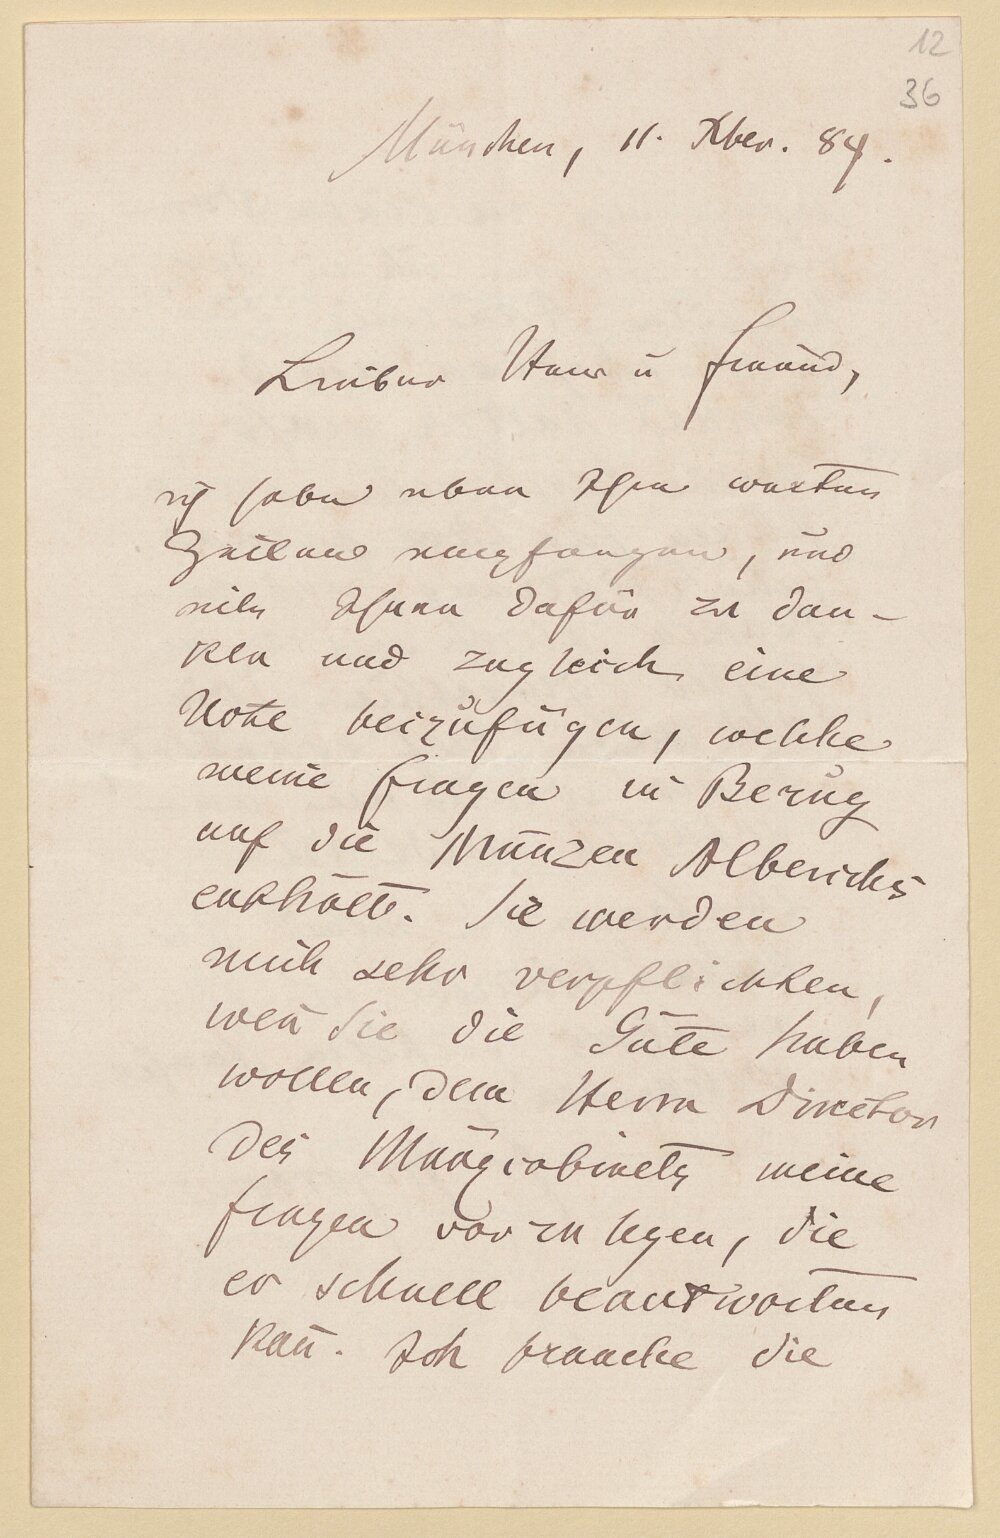 12
36
München, 11. Xber. 84.
Lieber Herr u Freund,
ich habe eben Ihre werten
Zeilen empfangen, und
eile Ihnen dafür zu dan-
ken und zugleich eine
Note beizufügen, welche
meine Fragen in Bezug
auf die Münzen Alberichs
enthält. Sie werden
mich sehr verpflichten,
wen̄ Sie die Güte haben
wollen, dem Herrn Direktor
des Münzcabinets meine
Fragen vorzulegen, die
er schnell beantworten
kan̄. Ich brauche die